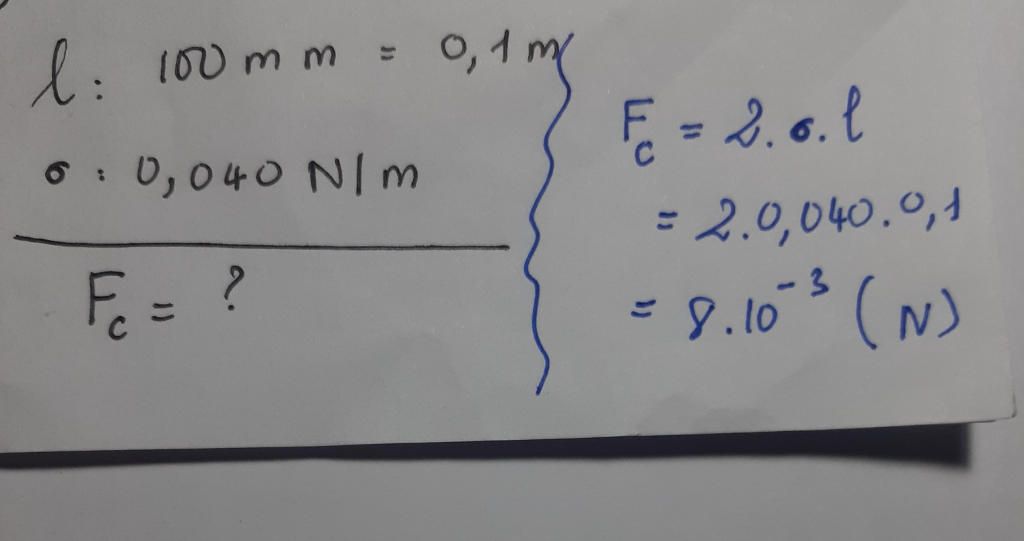 l: 100 mm = 0,1 m
σ: 0,040 N/m
Fc = ?
Fc = 2.σ.l
= 2.0,040.0,1
= 8.10⁻³ (N)